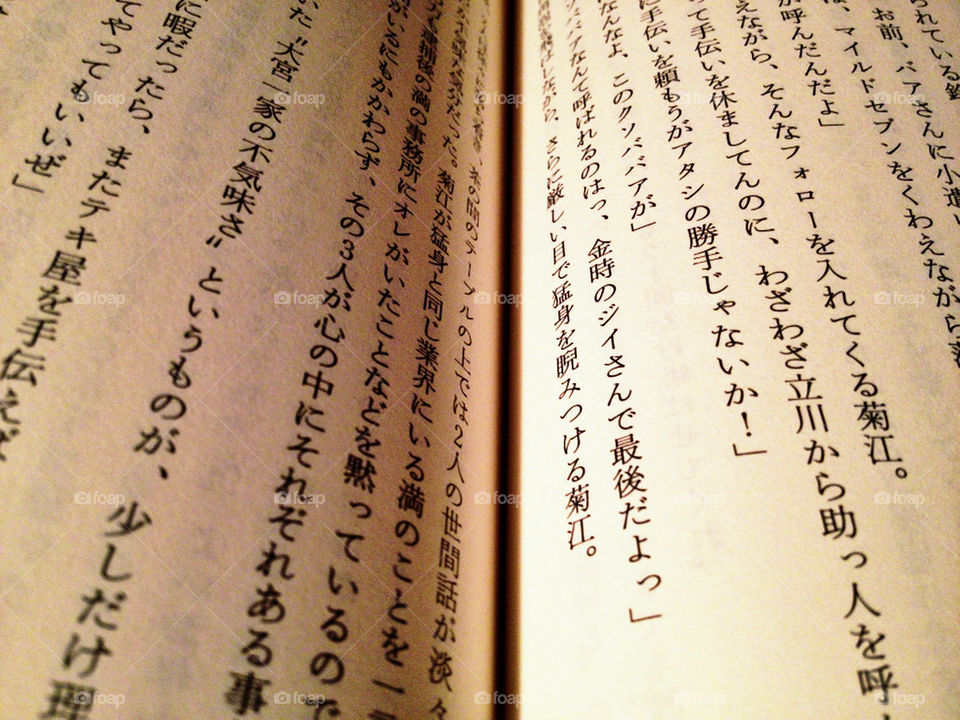 られている
お前、バアさんに小遣い
は、マイルドセブンをくわえながら
が呼んだんだよ」
えながら、そんなフォローを入れてくる菊江。
って手伝いを休ましてんのに、わざわざ立川から助っ人を呼
に手伝いを頼もうがアタシの勝手じゃないか!」
なんなよ、このクソババアが」
ソババアなんて呼ばれるのはっ、金時のジイさんで最後だよっ」
ながら、さらに厳しい目で猛身を睨みつける菊江。
の間のテーブルの上では2人の世間話が淡々
だった。菊江が猛身と同じ業界にいる満のことを一
満の事務所にオレがいたことなどを黙っているので
がいるにもかかわらず、その3人が心の中にそれぞれある事
いた〝大宮一家の不気味さ〟というものが、少しだけ理
に暇だったら、またテキ屋を手伝えば
てやってもいいぜ」
foap